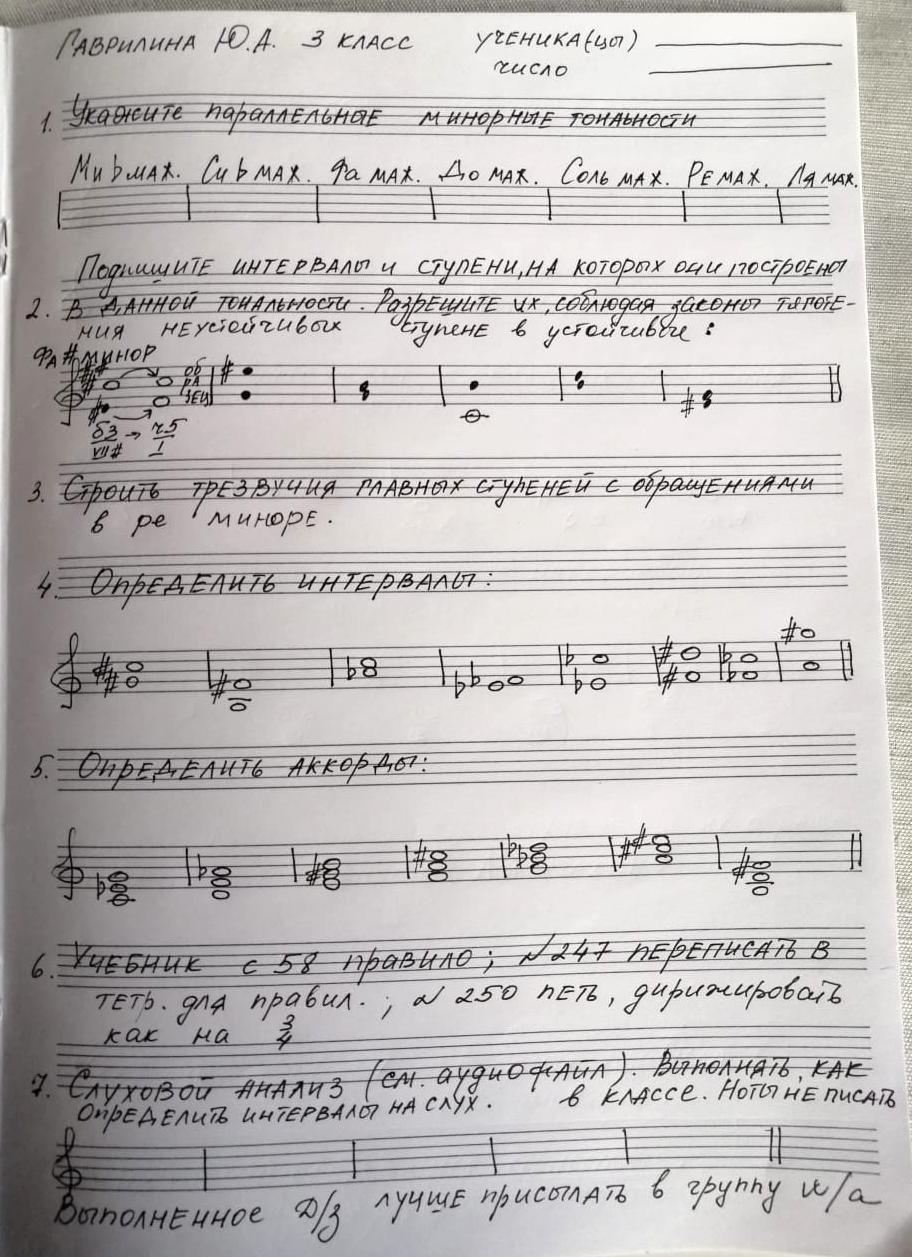 Гаврилина Ю.А. 3 класс ученика(цы)
число
1. Укажите параллельные минорные тональности
Ми b маж. Си b маж. Фа маж. До маж. Соль маж. Ре маж. Ля маж.
Подпишите интервалы и ступени, на которых они построены
2. в данной тональности. Разрешите их, соблюдая законы тяготе-
ния неустойчивых ступене в устойчивые:
Фа # минор
об
ра
зец
б3 → ч5
VII# I
3. Строить трезвучия главных ступеней с обращениями
в ре миноре.
4. Определить интервалы:
5. Определить аккорды:
6. Учебник с 58 правило; №247 переписать в
тетр. для правил.; №250 петь, дирижировать
как на 3/4
7. Слуховой анализ (см. аудиофайл). Выполнять, как
Определить интервалы на слух. в классе. Ноты не писать
Выполненное Д/з лучше присылать в группу